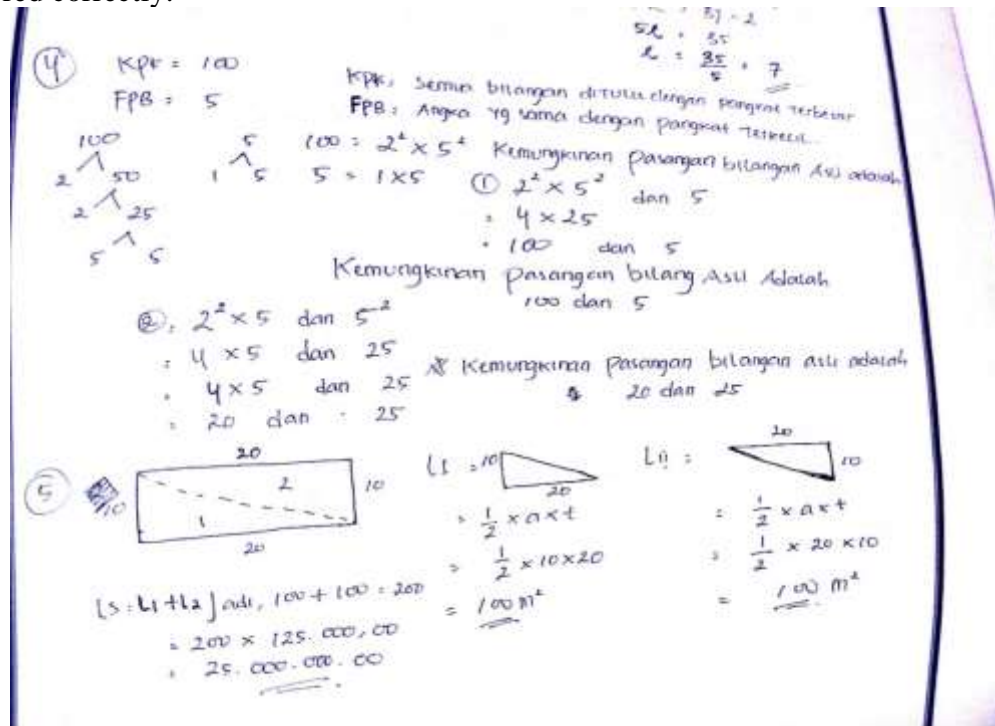 5l = 35
l = 35/5 = 7
4 KPK = 100
FPB = 5
KPK, Semua bilangan ditulis dengan pangkat terbesar
FPB, Angka yg sama dengan pangkat terkecil.
100
2 50
2 25
5 5
5
1 5
100 = 2² × 5² Kemungkinan pasangan bilangan Asli adalah
5 = 1 × 5 ① 2² × 5² dan 5
= 4 × 25
= 100 dan 5
Kemungkinan pasangan bilang Asli Adalah
100 dan 5
②. 2² × 5 dan 5²
= 4 × 5 dan 25
= 4 × 5 dan 25
= 20 dan 25
Kemungkinan pasangan bilangan asli adalah
20 dan 25
5
20
10
2
10
1
20
L1 = 10
20
= 1/2 × a × t
= 1/2 × 10 × 20
= 100 m²
Lii =
20
10
= 1/2 × a × t
= 1/2 × 20 × 10
= 100 m²
Ls = L1 + L2 Jadi, 100 + 100 = 200
= 200 × 125.000,00
= 25.000.000.00